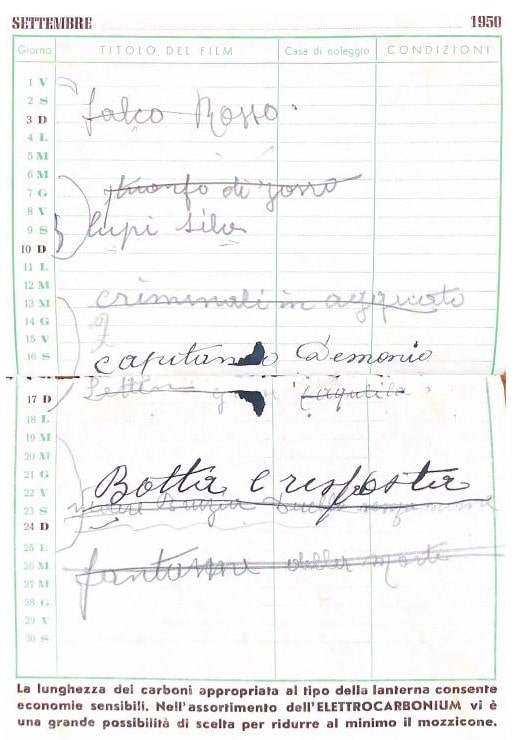 SETTEMBRE 1950
Giorno TITOLO DEL FILM Casa di noleggio CONDIZIONI
1 V
2 S
3 D Falco Rosso.
4 L
5 M
6 M
7 G di zorro
8 V
9 S lupi
10 D
11 L
12 M
13 M criminali in agguato
14 G
15 V
16 S capitano Demonio
17 D
18 L
19 M
20 M
21 G
22 V Botta e risposta
23 S
24 D
25 L
26 M fantasmi della morte
27 M
28 G
29 V
30 S
La lunghezza dei carboni appropriata al tipo della lanterna consente
economie sensibili. Nell'assortimento dell'ELETTROCARBONIUM vi è
una grande possibilità di scelta per ridurre al minimo il mozzicone.